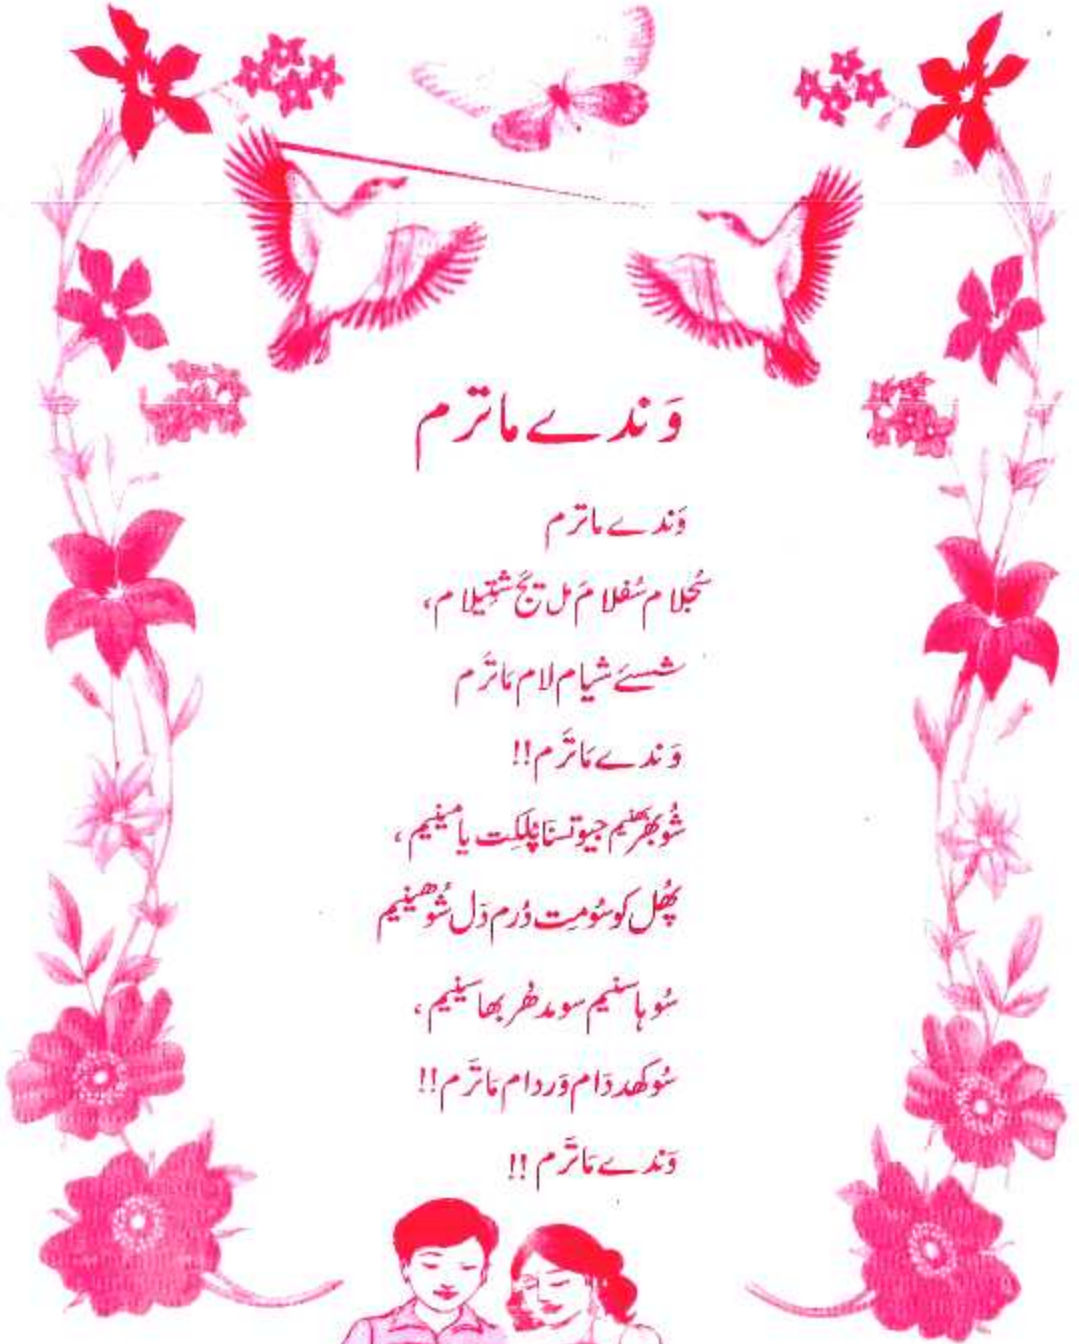 وَندے ماترم
وَندے ماترم
سُجلام سُفلام مَل یج شِیتلام،
شسئے شیام لام مَاترَم
وَندے مَاترَم!!
شُوبھرَھنیم جیوتسنَا پُلکِت یامینیم،
پھُل کوسُومِت دُرم دَل شُوھینیم
سُوہاسنیم سومدھُر بھاسینیم،
سُوکھددَام وَردام مَاترَم!!
وَندے مَاترَم!!